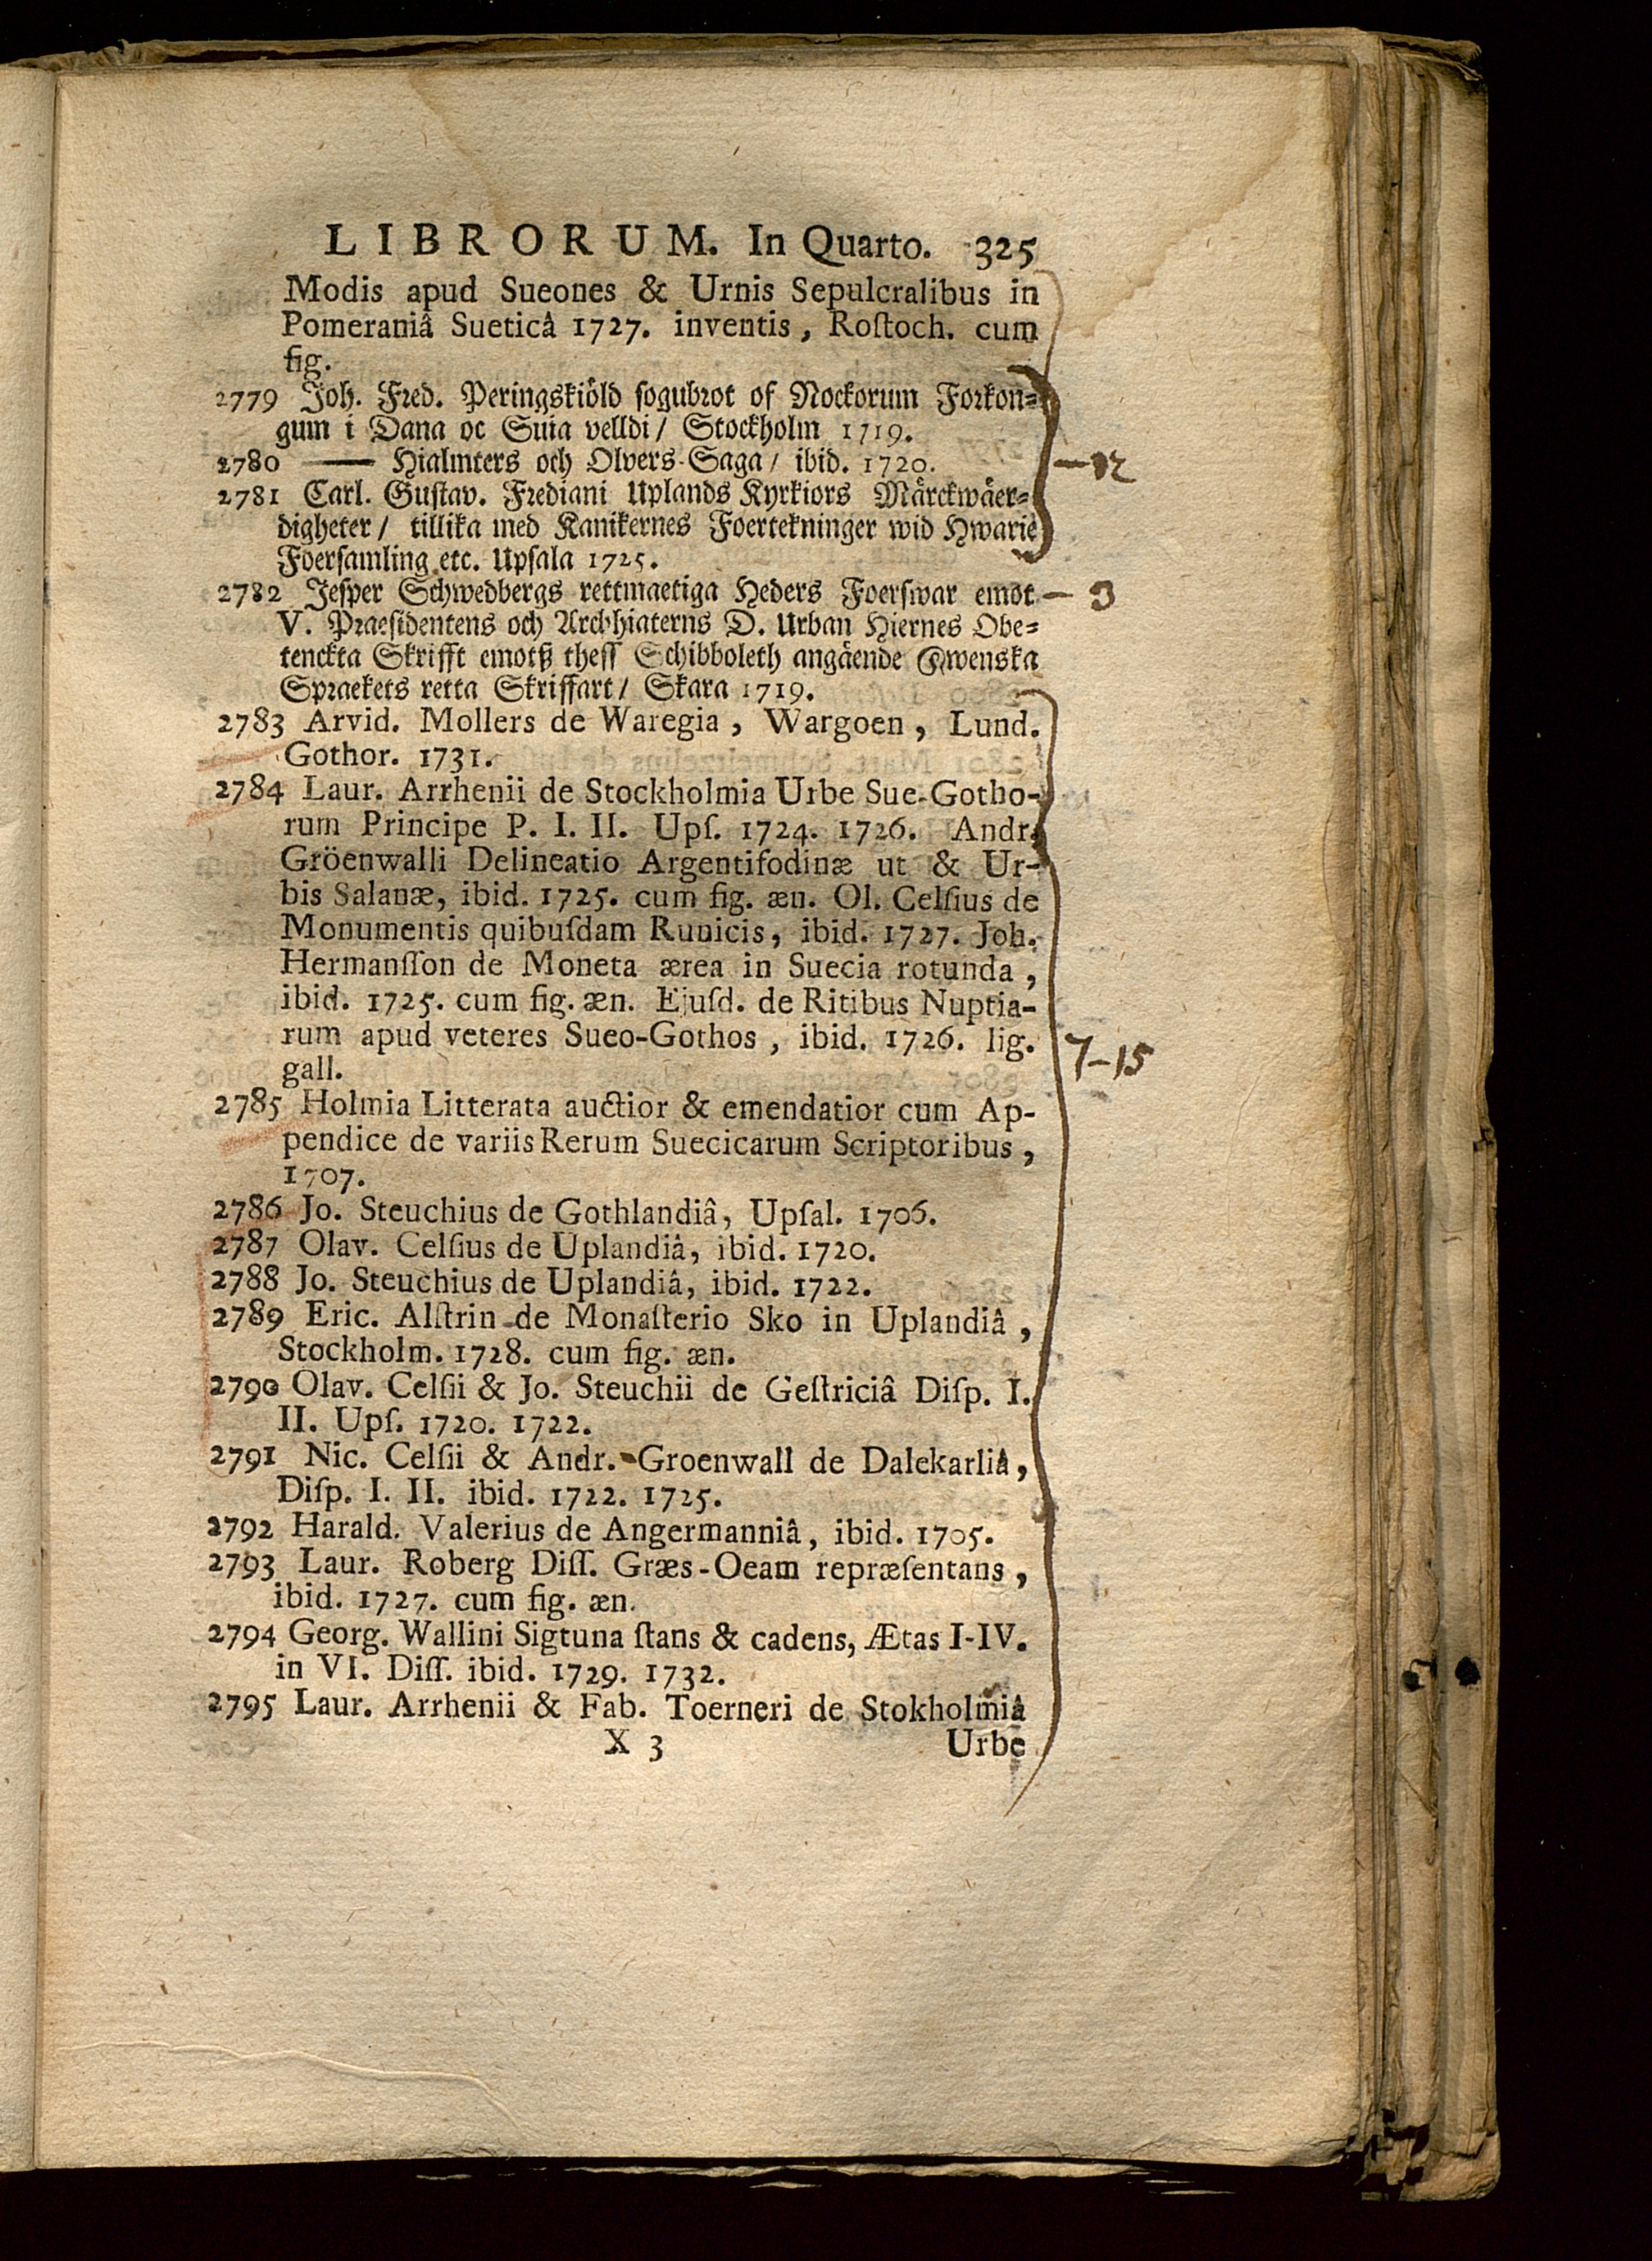 LIBRORUM. In Quarto. 325
Modis apud Sueones & Urnis Sepulcralibus in
Pomeraniâ Sueticâ 1727. inventis, Roſtoch. cum
fig.
2779 Joh. Fred. Peringskiöld sogubrot of Nockorum Forkon-
gum i Dana oc Suia velldi/ Stockholm 1719.
2780 —— Hialmters och Olvers-Saga/ ibid. 1720.
-12
2781 Carl. Gustav. Frediani Uplands Kyrkiors Märckwäer-
digheter/ tillika med Kanikernes Foertekninger wid Hwarie
Foersamling etc. Upsala 1725.
2782 Jesper Schwedbergs rettmaetiga Heders Foerswar emot
- 3
V. Praesidentens och Archhiaterns D. Urban Hiernes Obe-
tenckta Skrifft emotß thess Schibboleth angäende Swenska
Spraekets retta Skriffart/ Skara 1719.
2783 Arvid. Mollers de Waregia, Wargoen, Lund.
Gothor. 1731.
2784 Laur. Arrhenii de Stockholmia Urbe Sue-Gotho-
rum Principe P. I. II. Upſ. 1724. 1726. Andr.
Gröenwalli Delineatio Argentifodinæ ut & Ur-
bis Salanæ, ibid. 1725. cum fig. æn. Ol. Celſius de
Monumentis quibuſdam Runicis, ibid. 1727. Joh.
Hermanſſon de Moneta ærea in Suecia rotunda,
ibid. 1725. cum fig. æn. Ejuſd. de Ritibus Nuptia-
rum apud veteres Sueo-Gothos, ibid. 1726. lig.
7-15
gall.
2785 Holmia Litterata auctior & emendatior cum Ap-
pendice de variis Rerum Suecicarum Scriptoribus,
1707.
2786 Jo. Steuchius de Gothlandiâ, Upſal. 1706.
2787 Olav. Celſius de Uplandiâ, ibid. 1720.
2788 Jo. Steuchius de Uplandiâ, ibid. 1722.
2789 Eric. Alſtrin de Monaſterio Sko in Uplandiâ,
Stockholm. 1728. cum fig. æn.
2790 Olav. Celſii & Jo. Steuchii de Geſtriciâ Diſp. I.
II. Upſ. 1720. 1722.
2791 Nic. Celſii & Andr. Groenwall de Dalekarliâ,
Diſp. I. II. ibid. 1722. 1725.
2792 Harald. Valerius de Angermanniâ, ibid. 1705.
2793 Laur. Roberg Diſſ. Græs-Oeam repræſentans,
ibid. 1727. cum fig. æn.
2794 Georg. Wallini Sigtuna ſtans & cadens, Ætas I-IV.
in VI. Diſſ. ibid. 1729. 1732.
2795 Laur. Arrhenii & Fab. Toerneri de Stokholmiâ
X 3 Urbe